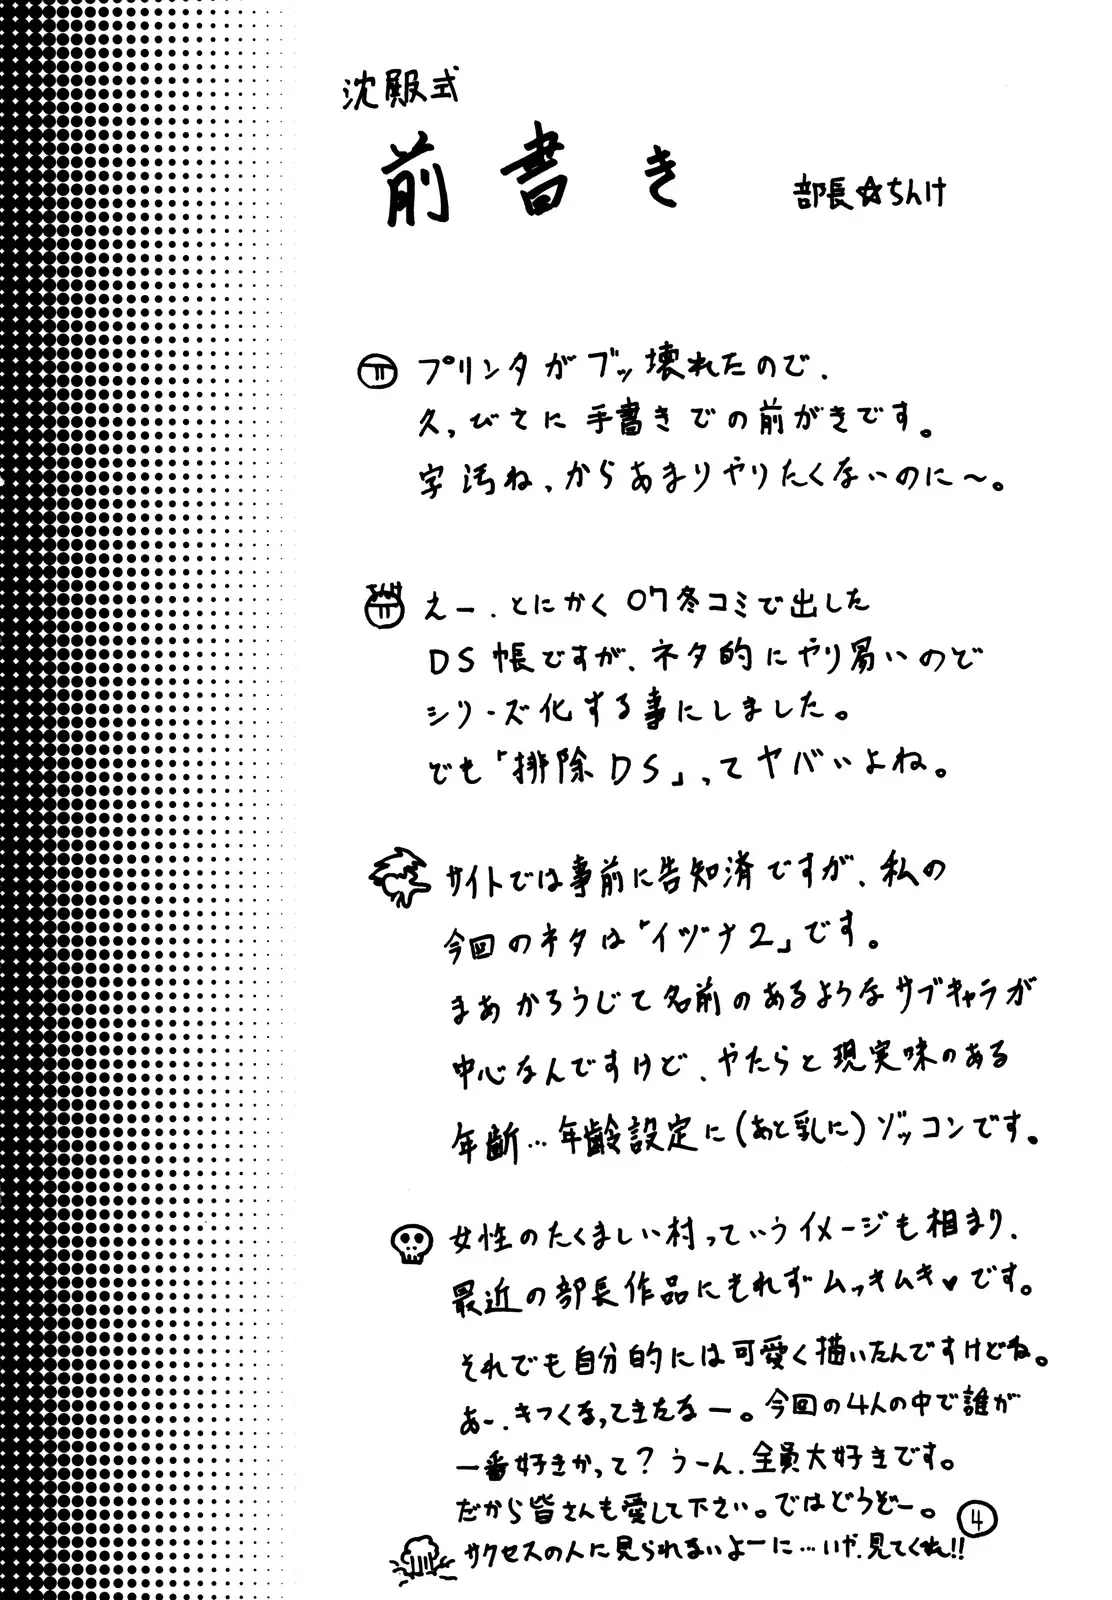 沈殿式
前書き
部長☆ちんけ
プリンタがブッ壊れたので、
久っびさに手書きでの前がきです。
字汚ねぇからあまりやりたくないのに〜。
えー、とにかく07冬コミで出した
DS帳ですが、ネタ的にやり易いので
シリーズ化する事にしました。
でも「排除DS」ってヤバいよね。
サイトでは事前に告知済ですが、私の
今回のネタは「イヅナ2」です。
まあかろうじて名前のあるようなサブキャラが
中心なんですけど、やたらと現実味のある
年齢…年齢設定に(あと乳に)ゾッコンです。
女性のたくましい村っていうイメージも相まり、
最近の部長作品にもれずムっキムキ♥です。
それでも自分的には可愛く描いたんですけどね。
あー、きつくなってきたなー。今回の4人の中で誰が
一番好きかって？うーん、全員大好きです。
だから皆さんも愛して下さい。ではどうぞー。
4
サクセスの人に見られないよーに…いや、見てくれ!!